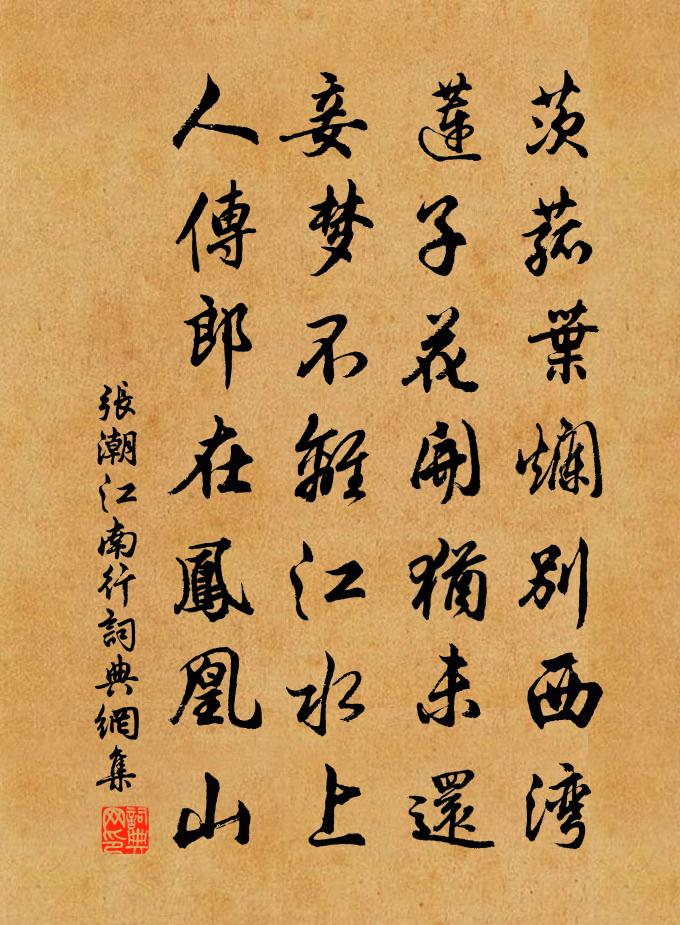 茨菰葉爛別西湾
蓮子花開猶未還
妾梦不離江水上
人傳郎在鳳凰山
張潮江南行詞典網集
詞典网印